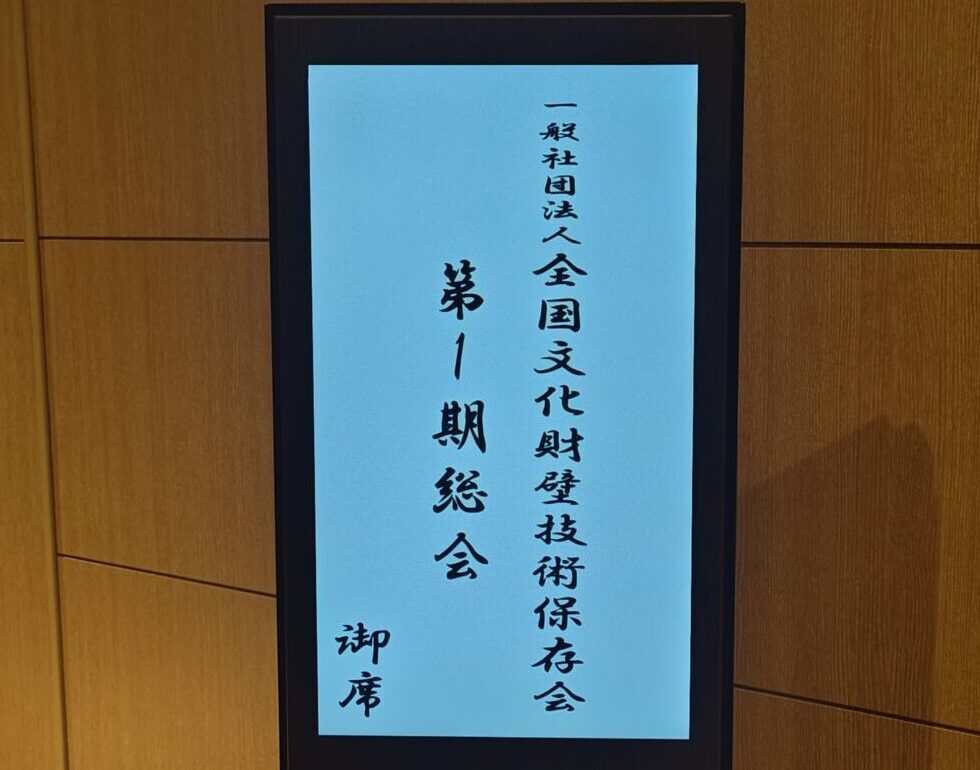 一般社団法人全国文化財壁技術保存会
第1期総会
御席